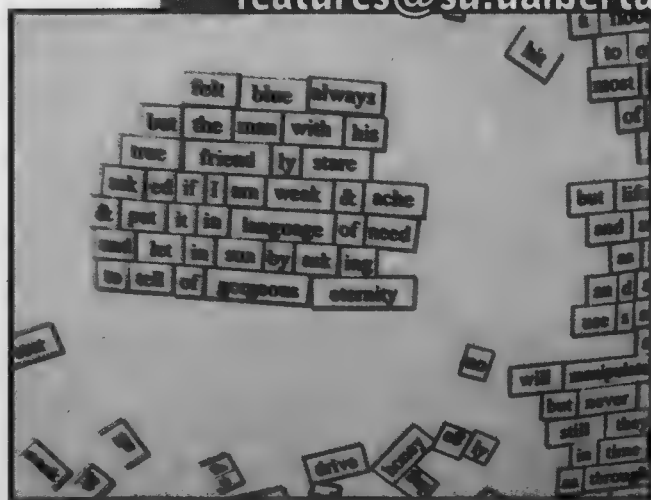 features@su.ualberta
felt blue always
but the man with his
true friend ly stare
ask ed if I am weak & ache
& put it in language of need
and let in sun by ask ing
to tell of gorgeous eternity
hit
to
most
of
but life
and
as
an d
use s
will manipulate
but never
still they
in time
as through
drive
of ly